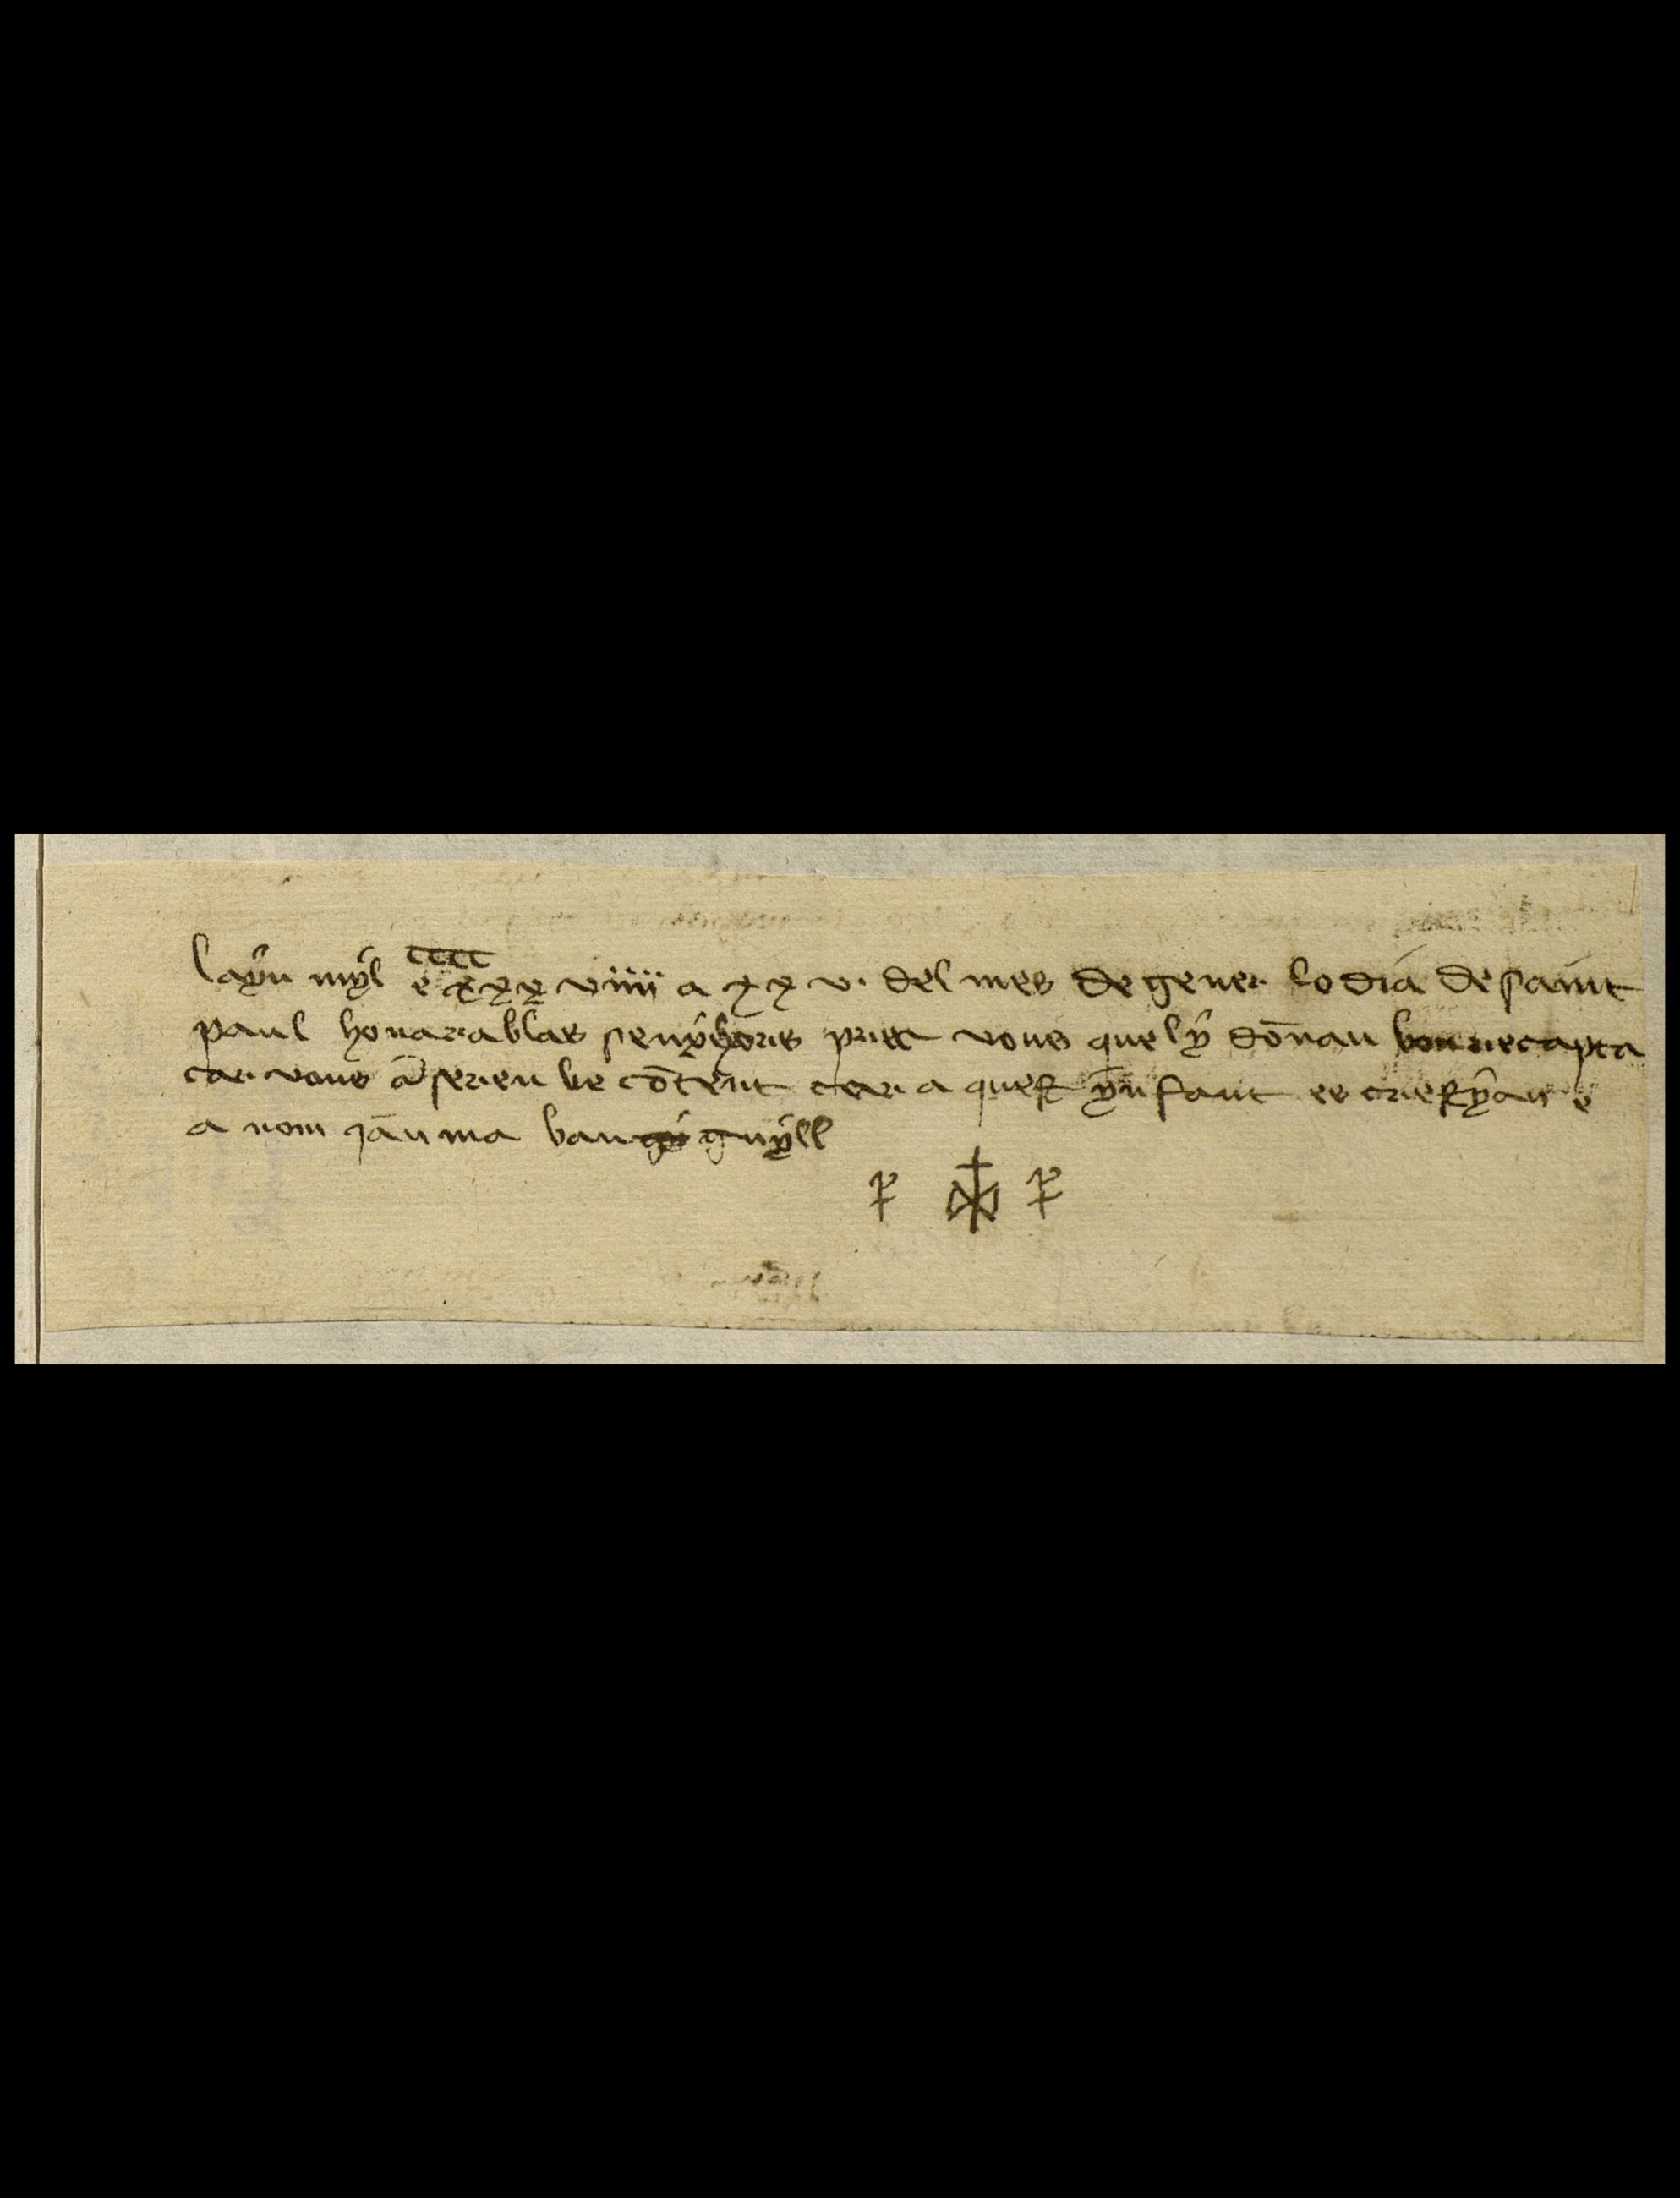 l ayn myl cccc
e xxx viiii a xx v. del mes de gener lo dia de saint
paul honarablas senyhors prec vous que ly dōnan bon recapta
car vous ā serien be cōtent car a quest ynfant es crestyan e
a nom jāuma ban guyll